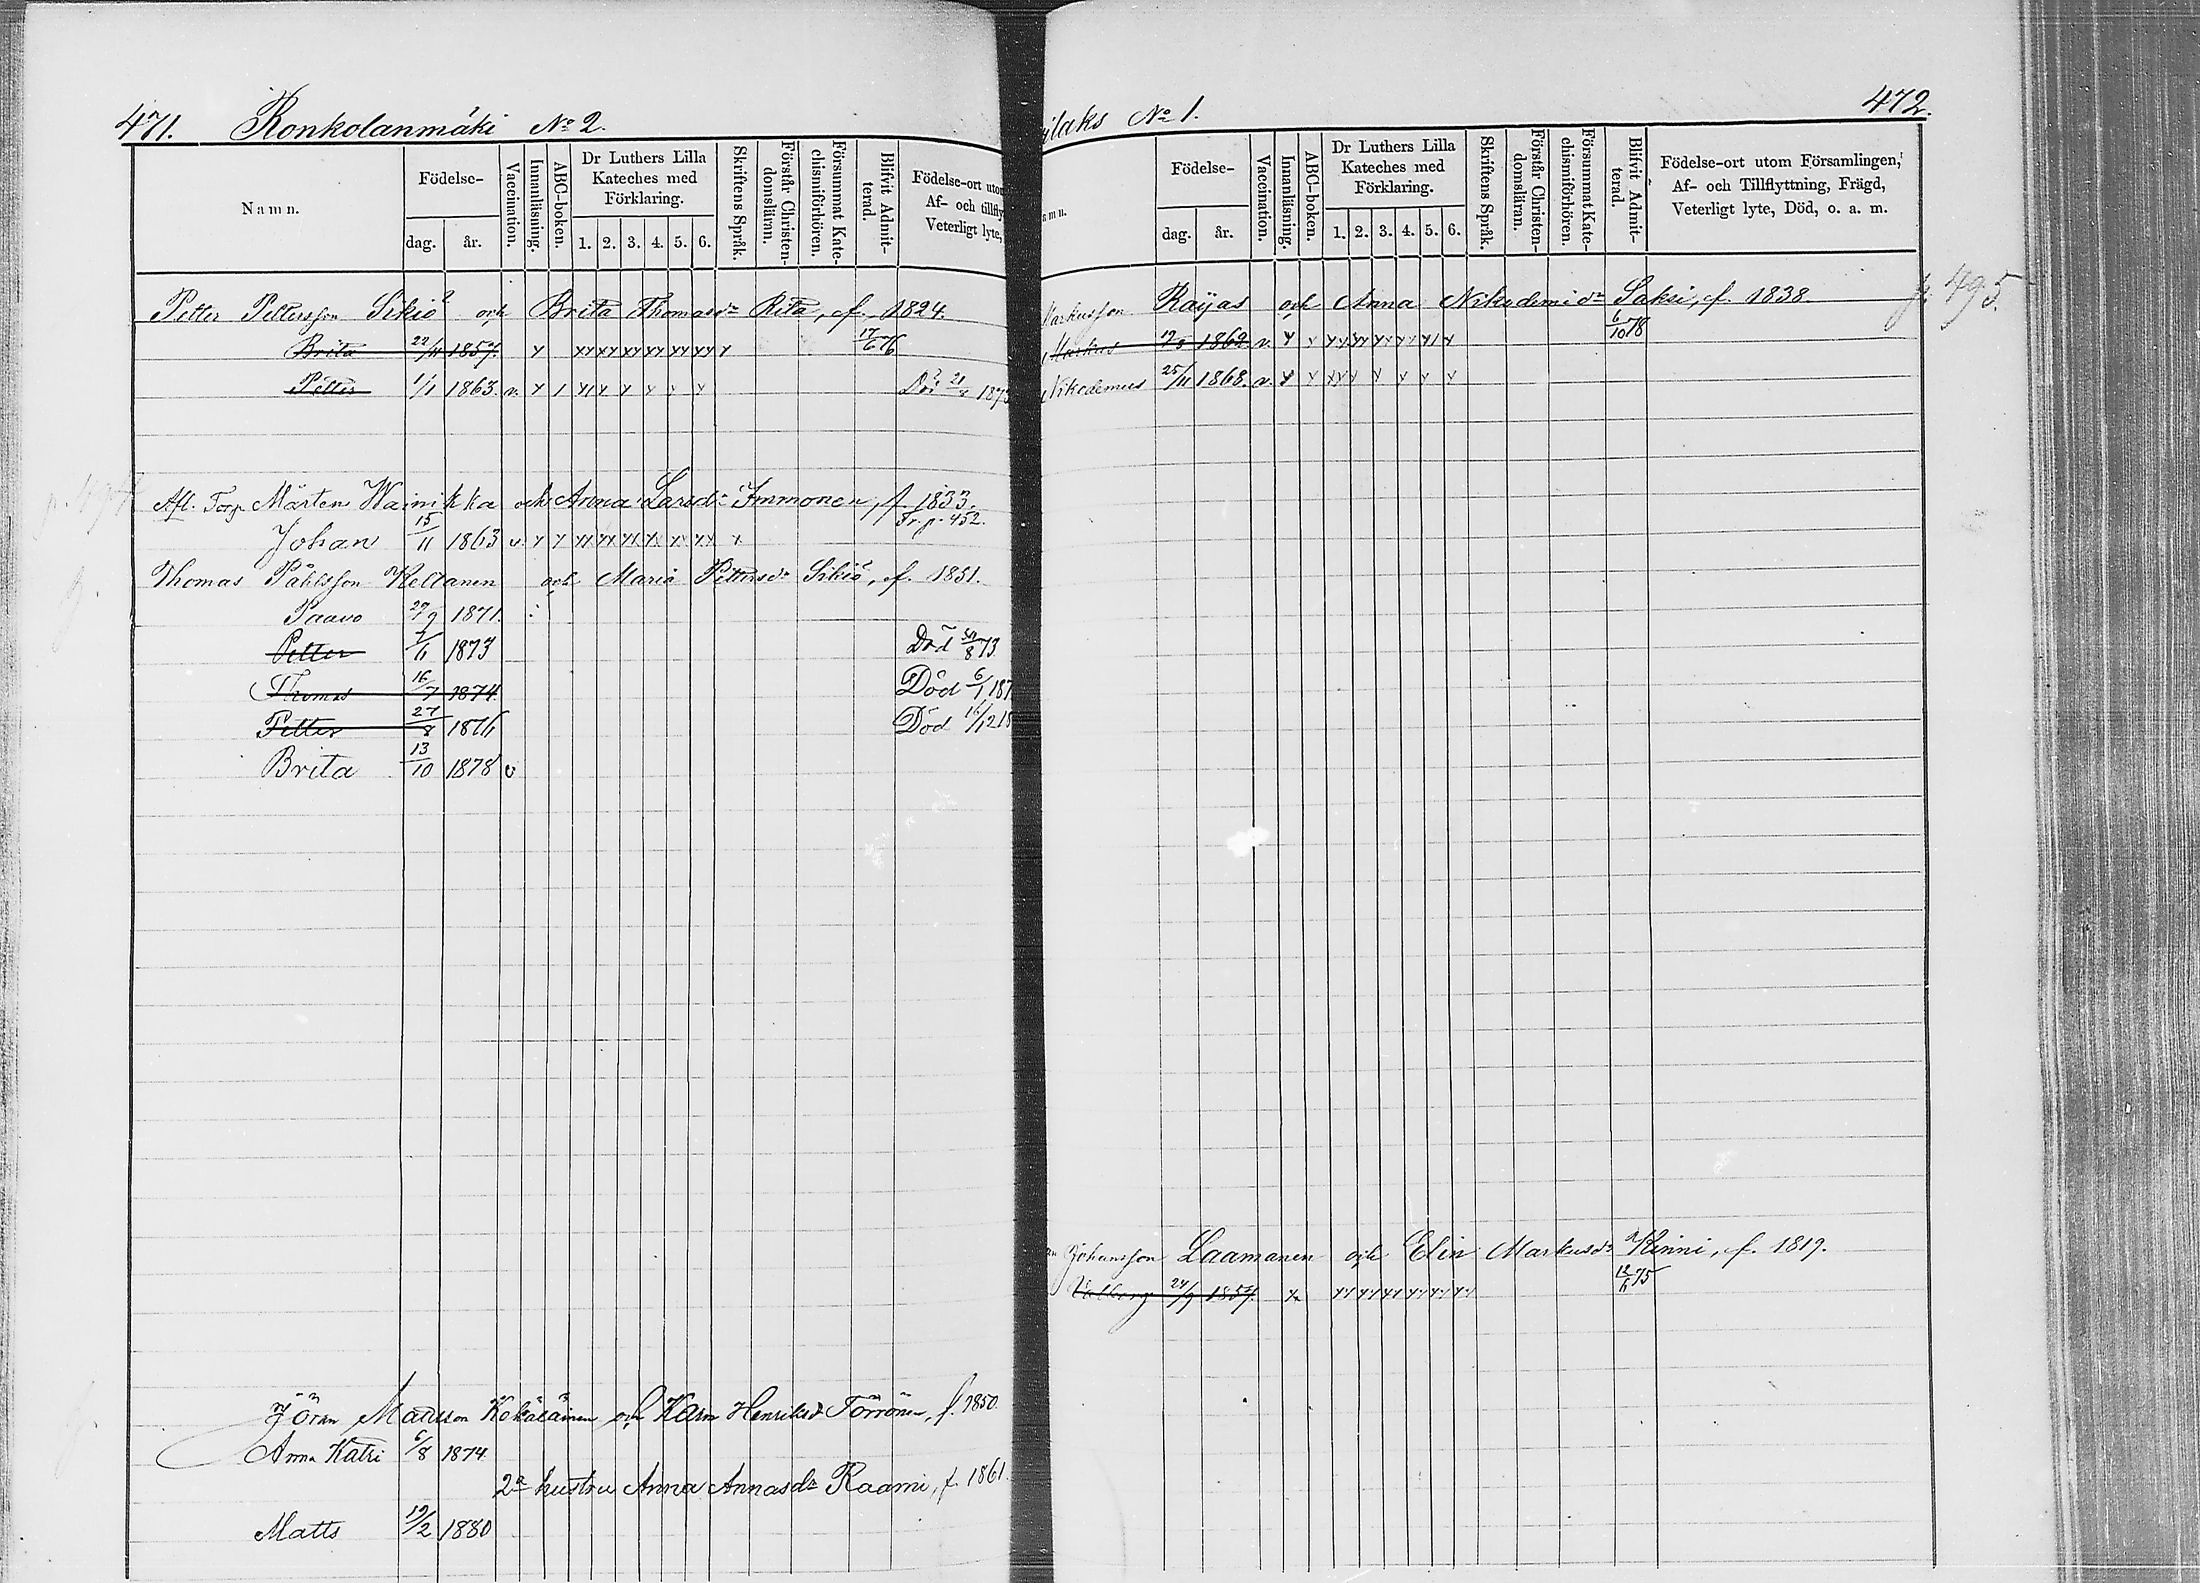 471. Ronkolanmäki No 2.
Namn.
Födelse-
dag. år.
Vaccination.
Innanläsning.
ABC-boken.
Dr Luthers Lilla Kateches med Förklaring.
1. 2. 3. 4. 5. 6.
Skriftens Språk.
Förstår Christen-domsläran.
Försummat Kate-chismiförhören.
Blifvit Admit-terad.
Födelse-ort uto
Af- och tillfly
Veterligt lyte,
Petter Pettersson Sikiö och Brita Thomasdr Rita, f. 1824.
Brita 22/11 1857. 17/6 76
Petter 1/1 1863. v. Död 21/ 187
Afl. Torp. Mårten Wainikka och Anna Larsdr Immonen, f. 1833.
Fr. p. 452.
Johan 15/11 1863 v.
Thomas Påhlsson Keltanen och Maria Pettersdr Sikiö, f. 1851.
Paavo 27/9 1871.
Petter 1873 Död /8 73
Thomas 16/7 1874. Död 6/1 187
Petter 27/8 1876 Död 16/12 18
Brita 13/10 1878 v
Jöran Matsson och Karin Henriksd Törrönen, f. 1850.
Anna Katri 6/8 1874
2a hustru Anna Annasdr Raami, f. 1861.
Matts 19/2 1880
ilaks No 1. 472.
amn.
Födelse-
dag. år.
Vaccination.
Innanläsning.
ABC-boken.
Dr Luthers Lilla Kateches med Förklaring.
1. 2. 3. 4. 5. 6.
Skriftens Språk.
Förstår Christen-domsläran.
Försummat Kate-chismiförhören.
Blifvit Admit-terad.
Födelse-ort utom Församlingen,
Af- och Tillflyttning, Frägd,
Veterligt lyte, Död, o. a. m.
Markusson Raijas och Anna Nikodemidr Saksi, f. 1838. p. 495.
Markus 1862. v. 6/10 78
Nikodemus 25/11 1868. v.
Johansson Laamanen och Elin Markusdr Kinni, f. 1819.
Valborg 24/9 1857. 12/11 75